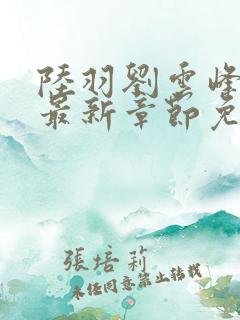 陸羽劉雲峰
最新章節免
張培莉
未經同意禁止轉載